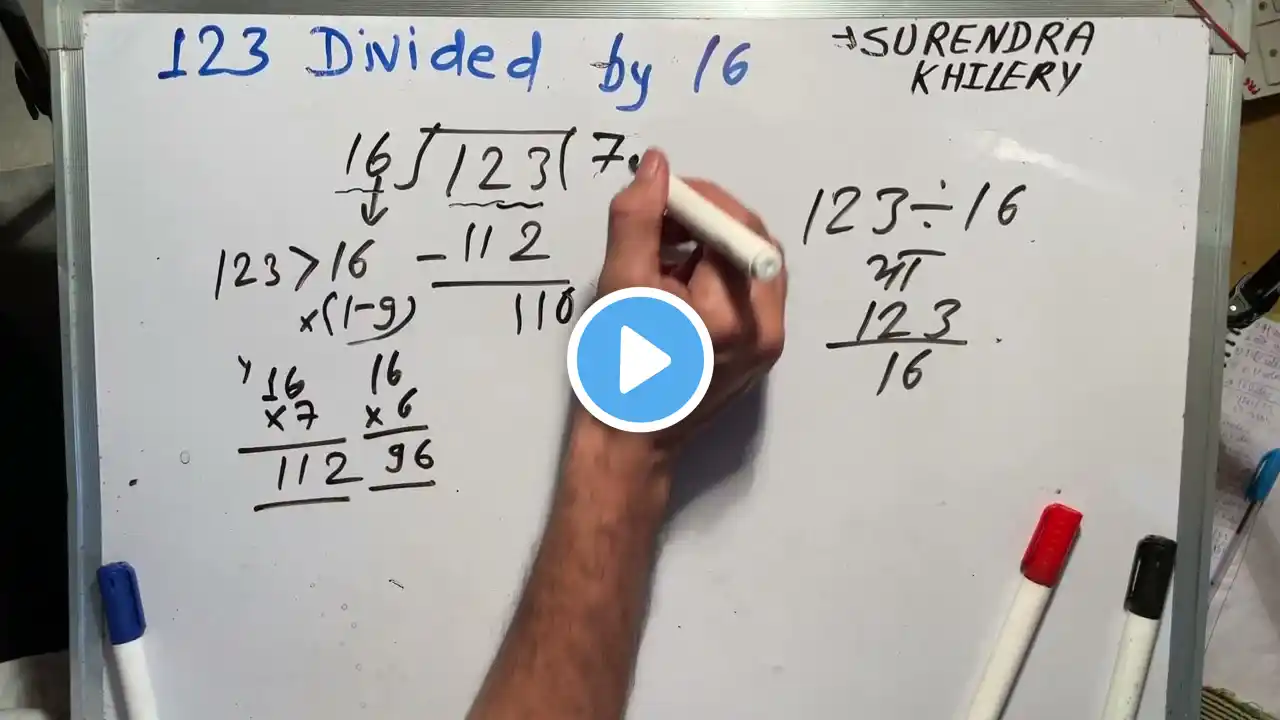 123 Divided by 16
→SURENDRA
KHILERY
16 123 7.
- 112
110
123 > 16
×(1-9)
16
×7
112
16
×6
96
123 ÷ 16
या
123
16